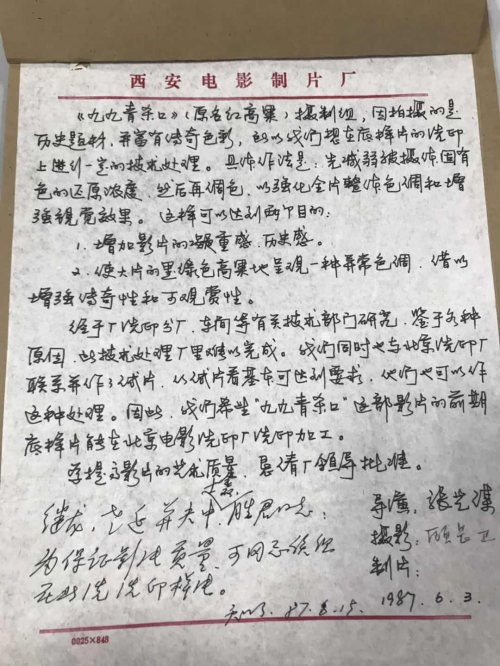 西安电影制片厂
《九九青杀口》（原名红高粱）摄制组，因拍摄的是
历史题材，并富有传奇色彩，所以我们想在底样片的洗印
上进行一定的技术处理。具体作法是：先减弱被摄体固有
色的还原浓度，然后再调色，以强化全片整体色调和增
强视觉效果。这样可以达到两个目的：
1. 增加影片的凝重感、历史感。
2. 使大片的墨绿色高粱地呈现一种异常色调，借以
增强传奇性和可观赏性。
经于厂洗印分厂、车间等有关技术部门研究，鉴于各种
原因，此技术处理厂里难以完成。我们同时也与北京洗印厂
联系并作了试片，从试片看基本可达到要求，他们也可以作
这种处理。因此，我们希望"九九青杀口"这部影片的前期
底样片能在北京电影洗印厂洗印加工。
为提高影片的艺术质量，恳请厂领导批准。
导演：张艺谋
摄影：顾长卫
制片：
1987.6.3.
同志：
为保证影片质量，可同意
在北洗洗印样片。
87.6.15.
0025×848